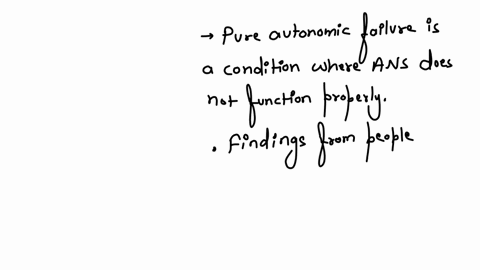 → Pure autonomic failure is
a condition where ANS does
not function properly.
. Findings from people